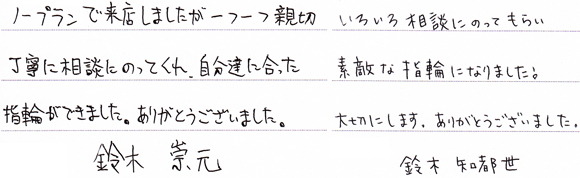 ノープランで来店しましたが一つ一つ親切
丁寧に相談にのってくれ、自分達に合った
指輪ができました。ありがとうございました。
鈴木 崇元
いろいろ相談にのってもらい
素敵な指輪になりました。
大切にします。ありがとうございました。
鈴木 知都世